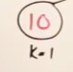 10
K=1